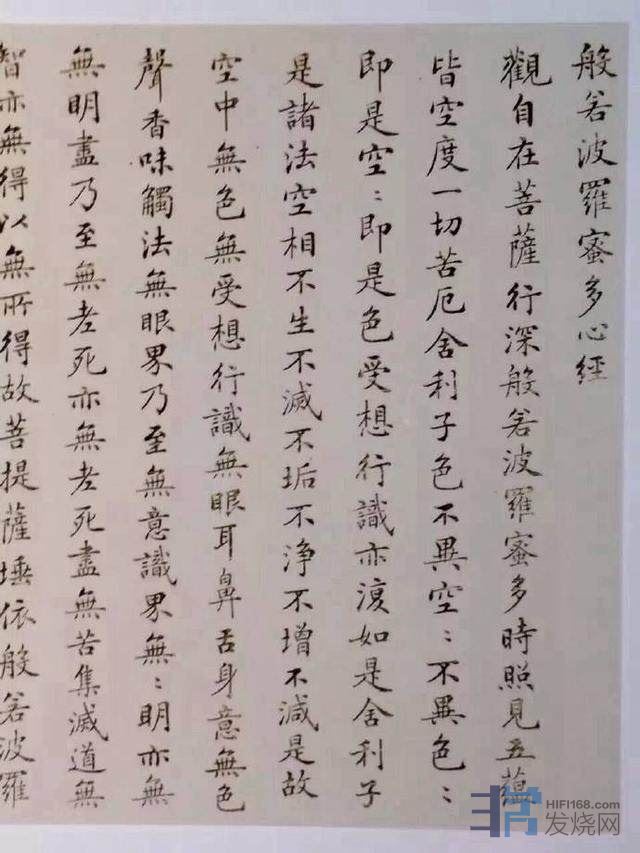 般若波羅蜜多心經
觀自在菩薩行深般若波羅蜜多時照見五蘊
皆空度一切苦厄舍利子色不異空:不異色:
即是空:即是色受想行識亦復如是舍利子
是諸法空相不生不滅不垢不淨不增不減是故
空中無色無受想行識無眼耳鼻舌身意無色
聲香味觸法無眼界乃至無意識界無:明亦無
無明盡乃至無老死亦無老死盡無苦集滅道無
智亦無得以無所得故菩提薩埵依般若波羅
HIFI168.com
发烧网